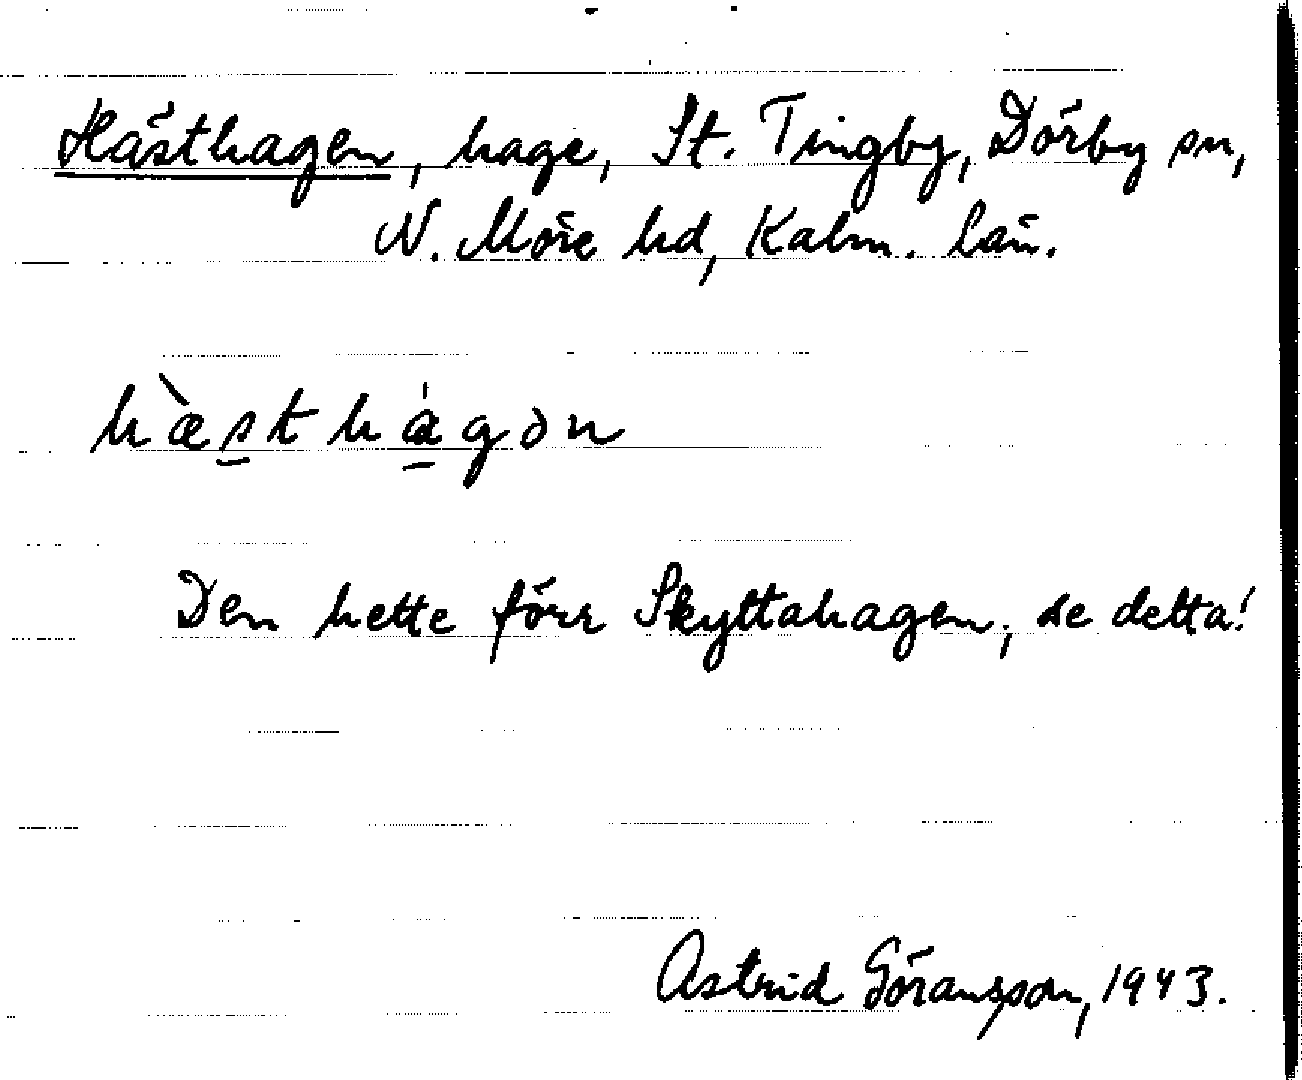 Hästhagen, hage, St. Tingby, Dörby sn,
N. Möre hd, Kalm. län.
hæ̀sthágən
Den hette förr Skyttahagen, se detta!
Astrid Göransson, 1943.